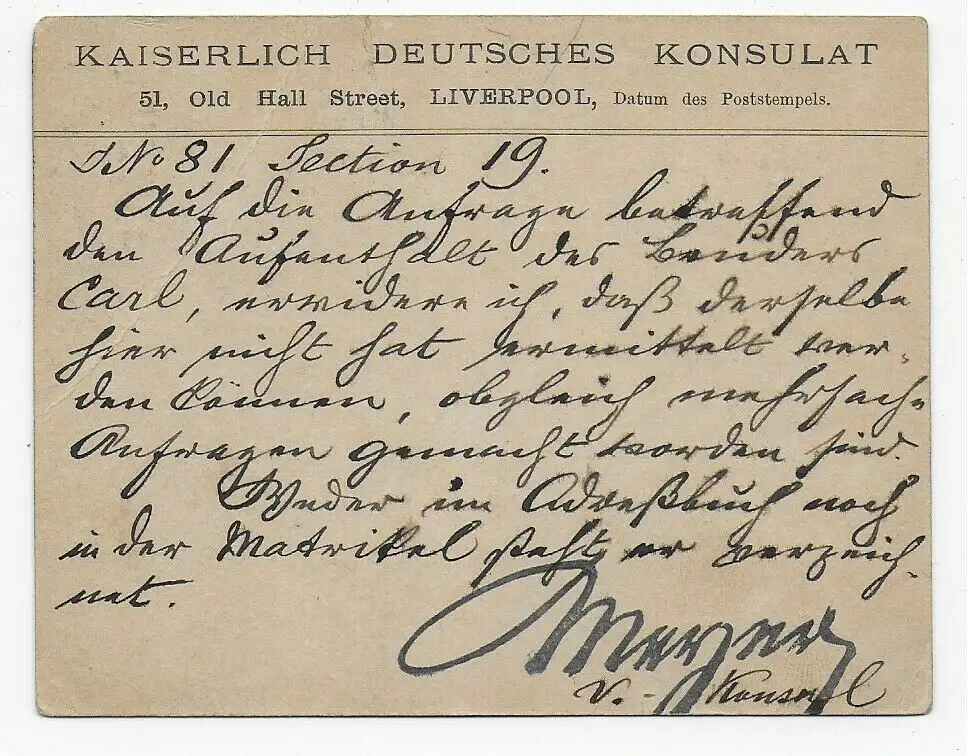 KAISERLICH DEUTSCHES KONSULAT
51, Old Hall Street, LIVERPOOL, Datum des Poststempels.
J No 81 Section 19.
Auf die Anfrage betreffend
den Aufenthalt des Bruders
Carl, erwidere ich, daß derselbe
hier nicht hat ermittelt wer-
den können, obgleich mehrfache
Anfragen gemacht worden sind.
Weder im Adreßbuch noch
in der Matrikel steht er verzeich-
net.
Meyer
V. - Konsul